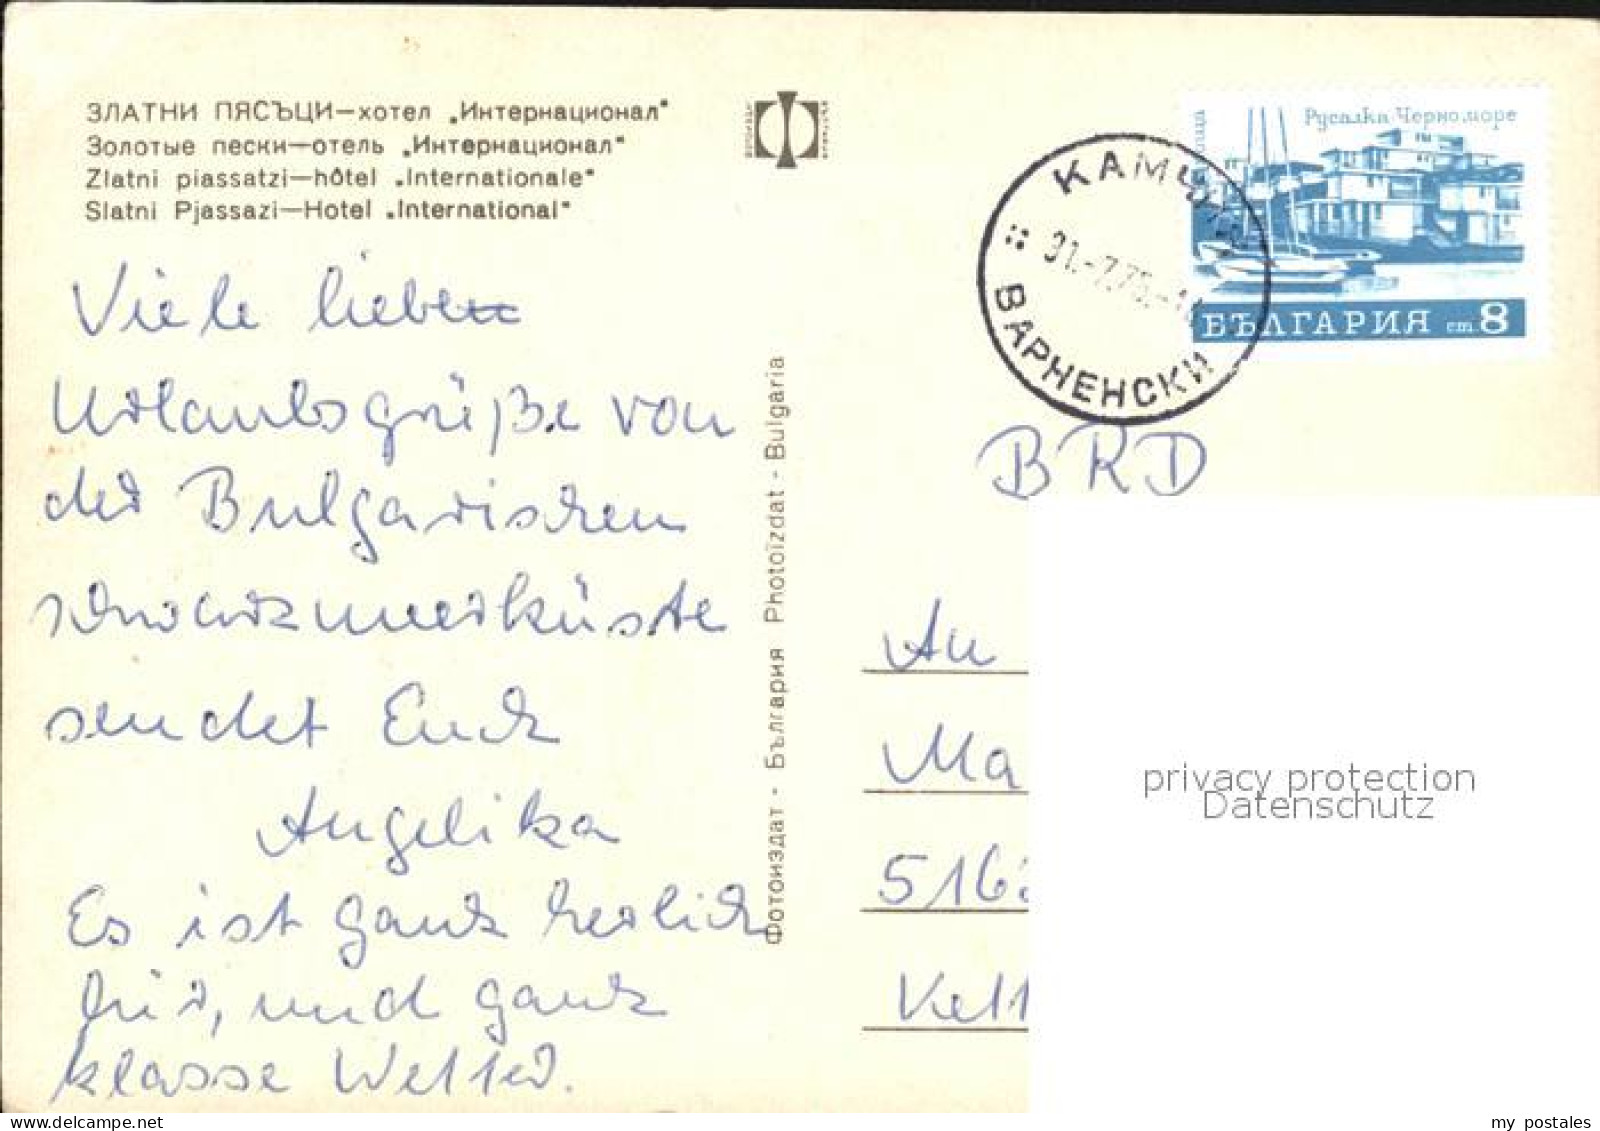 ЗЛАТНИ ПЯСЪЦИ—хотел „Интернационал“
Золотые пески—отель „Интернационал“
Zlatni piassatzi—hôtel „Internationale“
Slatni Pjassazi—Hotel „International“
Viele liebe
Urlaubsgrüße von
der Bulgarischen
schwarzmeerküste
sendet Euch
Angelika
Es ist ganz herlich
hier, und ganz
klasse Wetter.
Фотоиздат - България Photoizdat - Bulgaria
Русалка Черноморе
БЪЛГАРИЯ ст 8
КАМЧИЯ
31.-7.75.-1
ВАРНЕНСКИ
BRD
An
Ma
516
Kett
privacy protection
Datenschutz
my postales